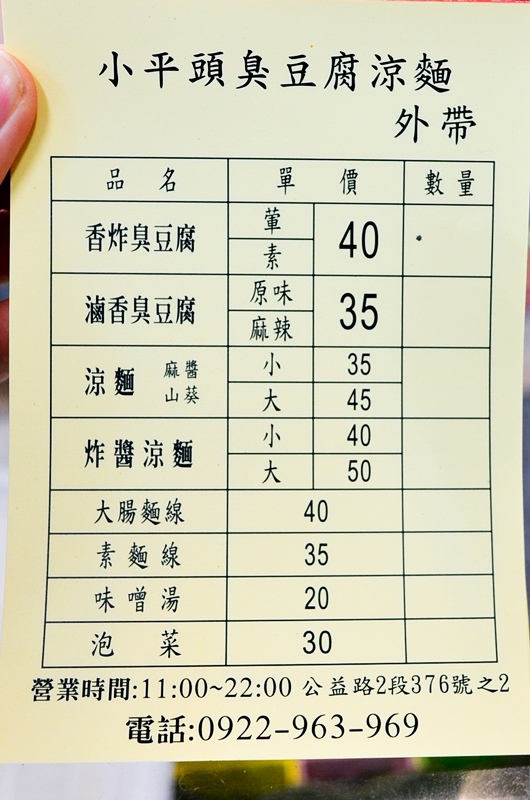 小平頭臭豆腐涼麵
外帶
品名 單價 數量
香炸臭豆腐 葷 素 40
滷香臭豆腐 原味 麻辣 35
涼麵 麻醬 山葵 小 35
大 45
炸醬涼麵 小 40
大 50
大腸麵線 40
素麵線 35
味噌湯 20
泡菜 30
營業時間:11:00~22:00 公益路2段376號之2
電話:0922-963-969